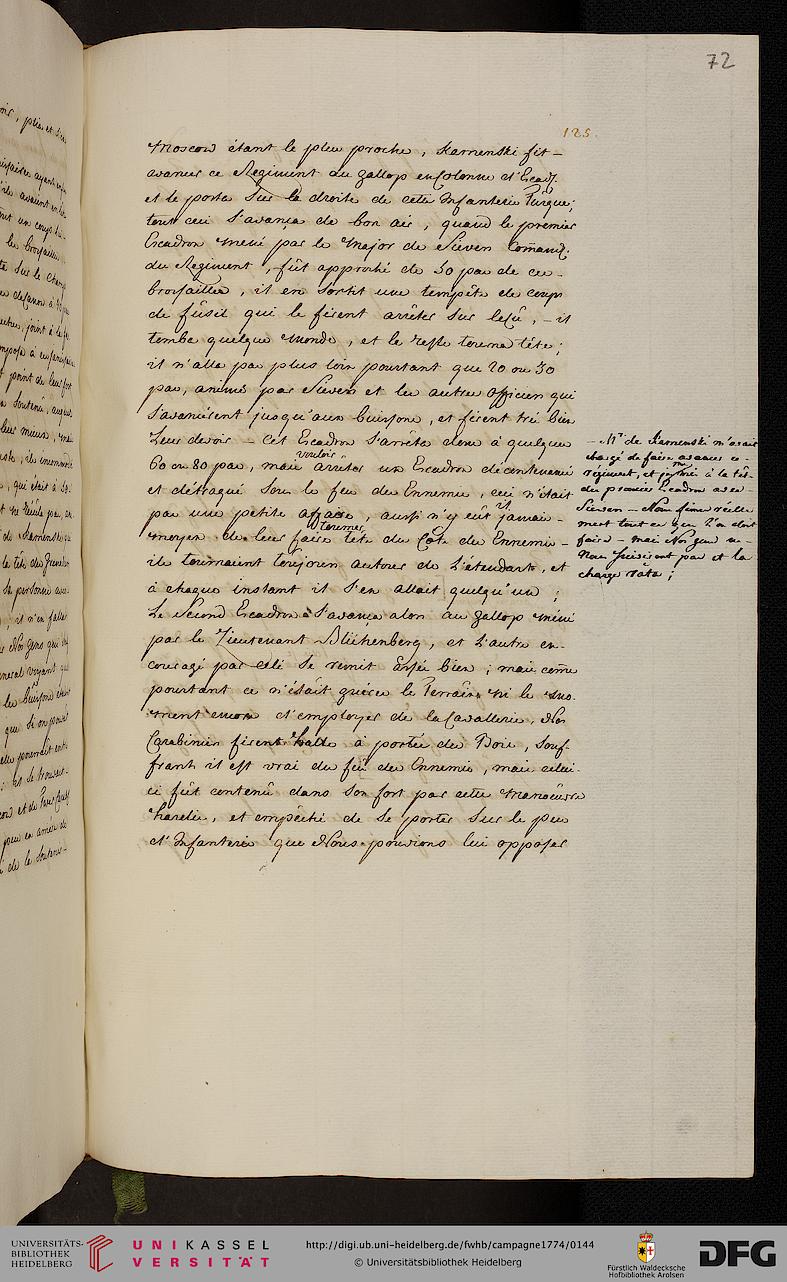 72
125.
Moscow étant le plus proche, Kamenski fit -
avancer ce Regiment au gallop en Colonne d'Escad:
et le porta Sur la droite de cette Infanterie Turque;
tout ceci S'avança de bon air, quand le premier
Escadron mené par le Major de Sievers Com̄and:
du Regiment, fût approché de 50 pas de ces -
brossailles, il en Sortit une tempête de coups
de fûsil qui le firent arrêter Sur le Cû, - il
tomba quelque monde, et le reste tourna tête;
il n'alla pas plus loin pourtant que 20 ou 30
pas, animés par Sievers et les autres Officiers qui
S'avancèrent jusqu'aux buissons, et firent très bien
Leur devoir - Cet Escadron S'arrêta donc à quelques
60 ou 80 pas, mais vouloir arrêter un Escadron décontenancé
et détraqué Sous le feu des Ennemis, ceci n'étoit
pas une petite affaire, aussi n'y eût il jamais -
moyen de leur faire tourner tête du Coté des Ennemis -
ils tournaient toujours autour de L'étendart, et
à chaque instant il S'en alloit quelqu'un;
Le Second Escadron S'avança alors au gallop mené
par le Lieutenant Blückenberg, et L'autre en-
couragé par celà Se remit assés bien; mais com̄e
pourtant ce n'étoit guères le Terrain ni le mo-
ment encore d'employer de la Cavallerie, Nos
Carabiniers firent halte à portée du Bois, Souf-
frant il est vrai du feu des Ennemis, mais celui-
ci fût contenû dans Son fort par cette Manoeuvre
hardie, et empêché de Se porter Sur le peu
d'Infanterie que Nous pouvions lui opposer
- Mr. de Kamenski m'avait
chargé de faire avancer ce -
régiment, et je me mis à la tête
du premier Escadron avec
Sievers - Nous fimes réelle-
ment tout ce que l'on doit
faire - mais Nos gens ne -
Nous suivirent pas et la
charge râta;
UNIVERSITÄTS-
BIBLIOTHEK
HEIDELBERG
UNIKASSEL
VERSITÄT
http://digi.ub.uni-heidelberg.de/fwhb/campagne1774/0144
© Universitätsbibliothek Heidelberg
Fürstlich Waldecksche
Hofbibliothek Arolsen
DFG